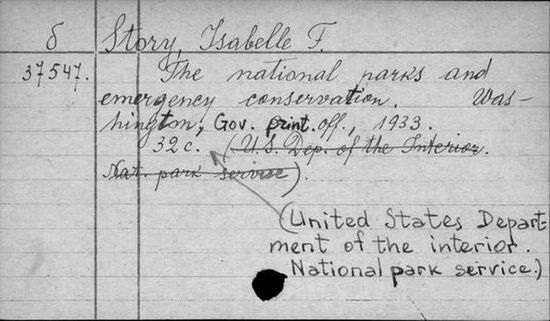 δ Story, Isabelle F.
37547. The national parks and
emergency conservation. Was-
hington, Gov. print. off., 1933.
32 c. (U.S. Dep. of the Interior.
Nat. park service).
(United States Depart-
ment of the interior.
National park service.)